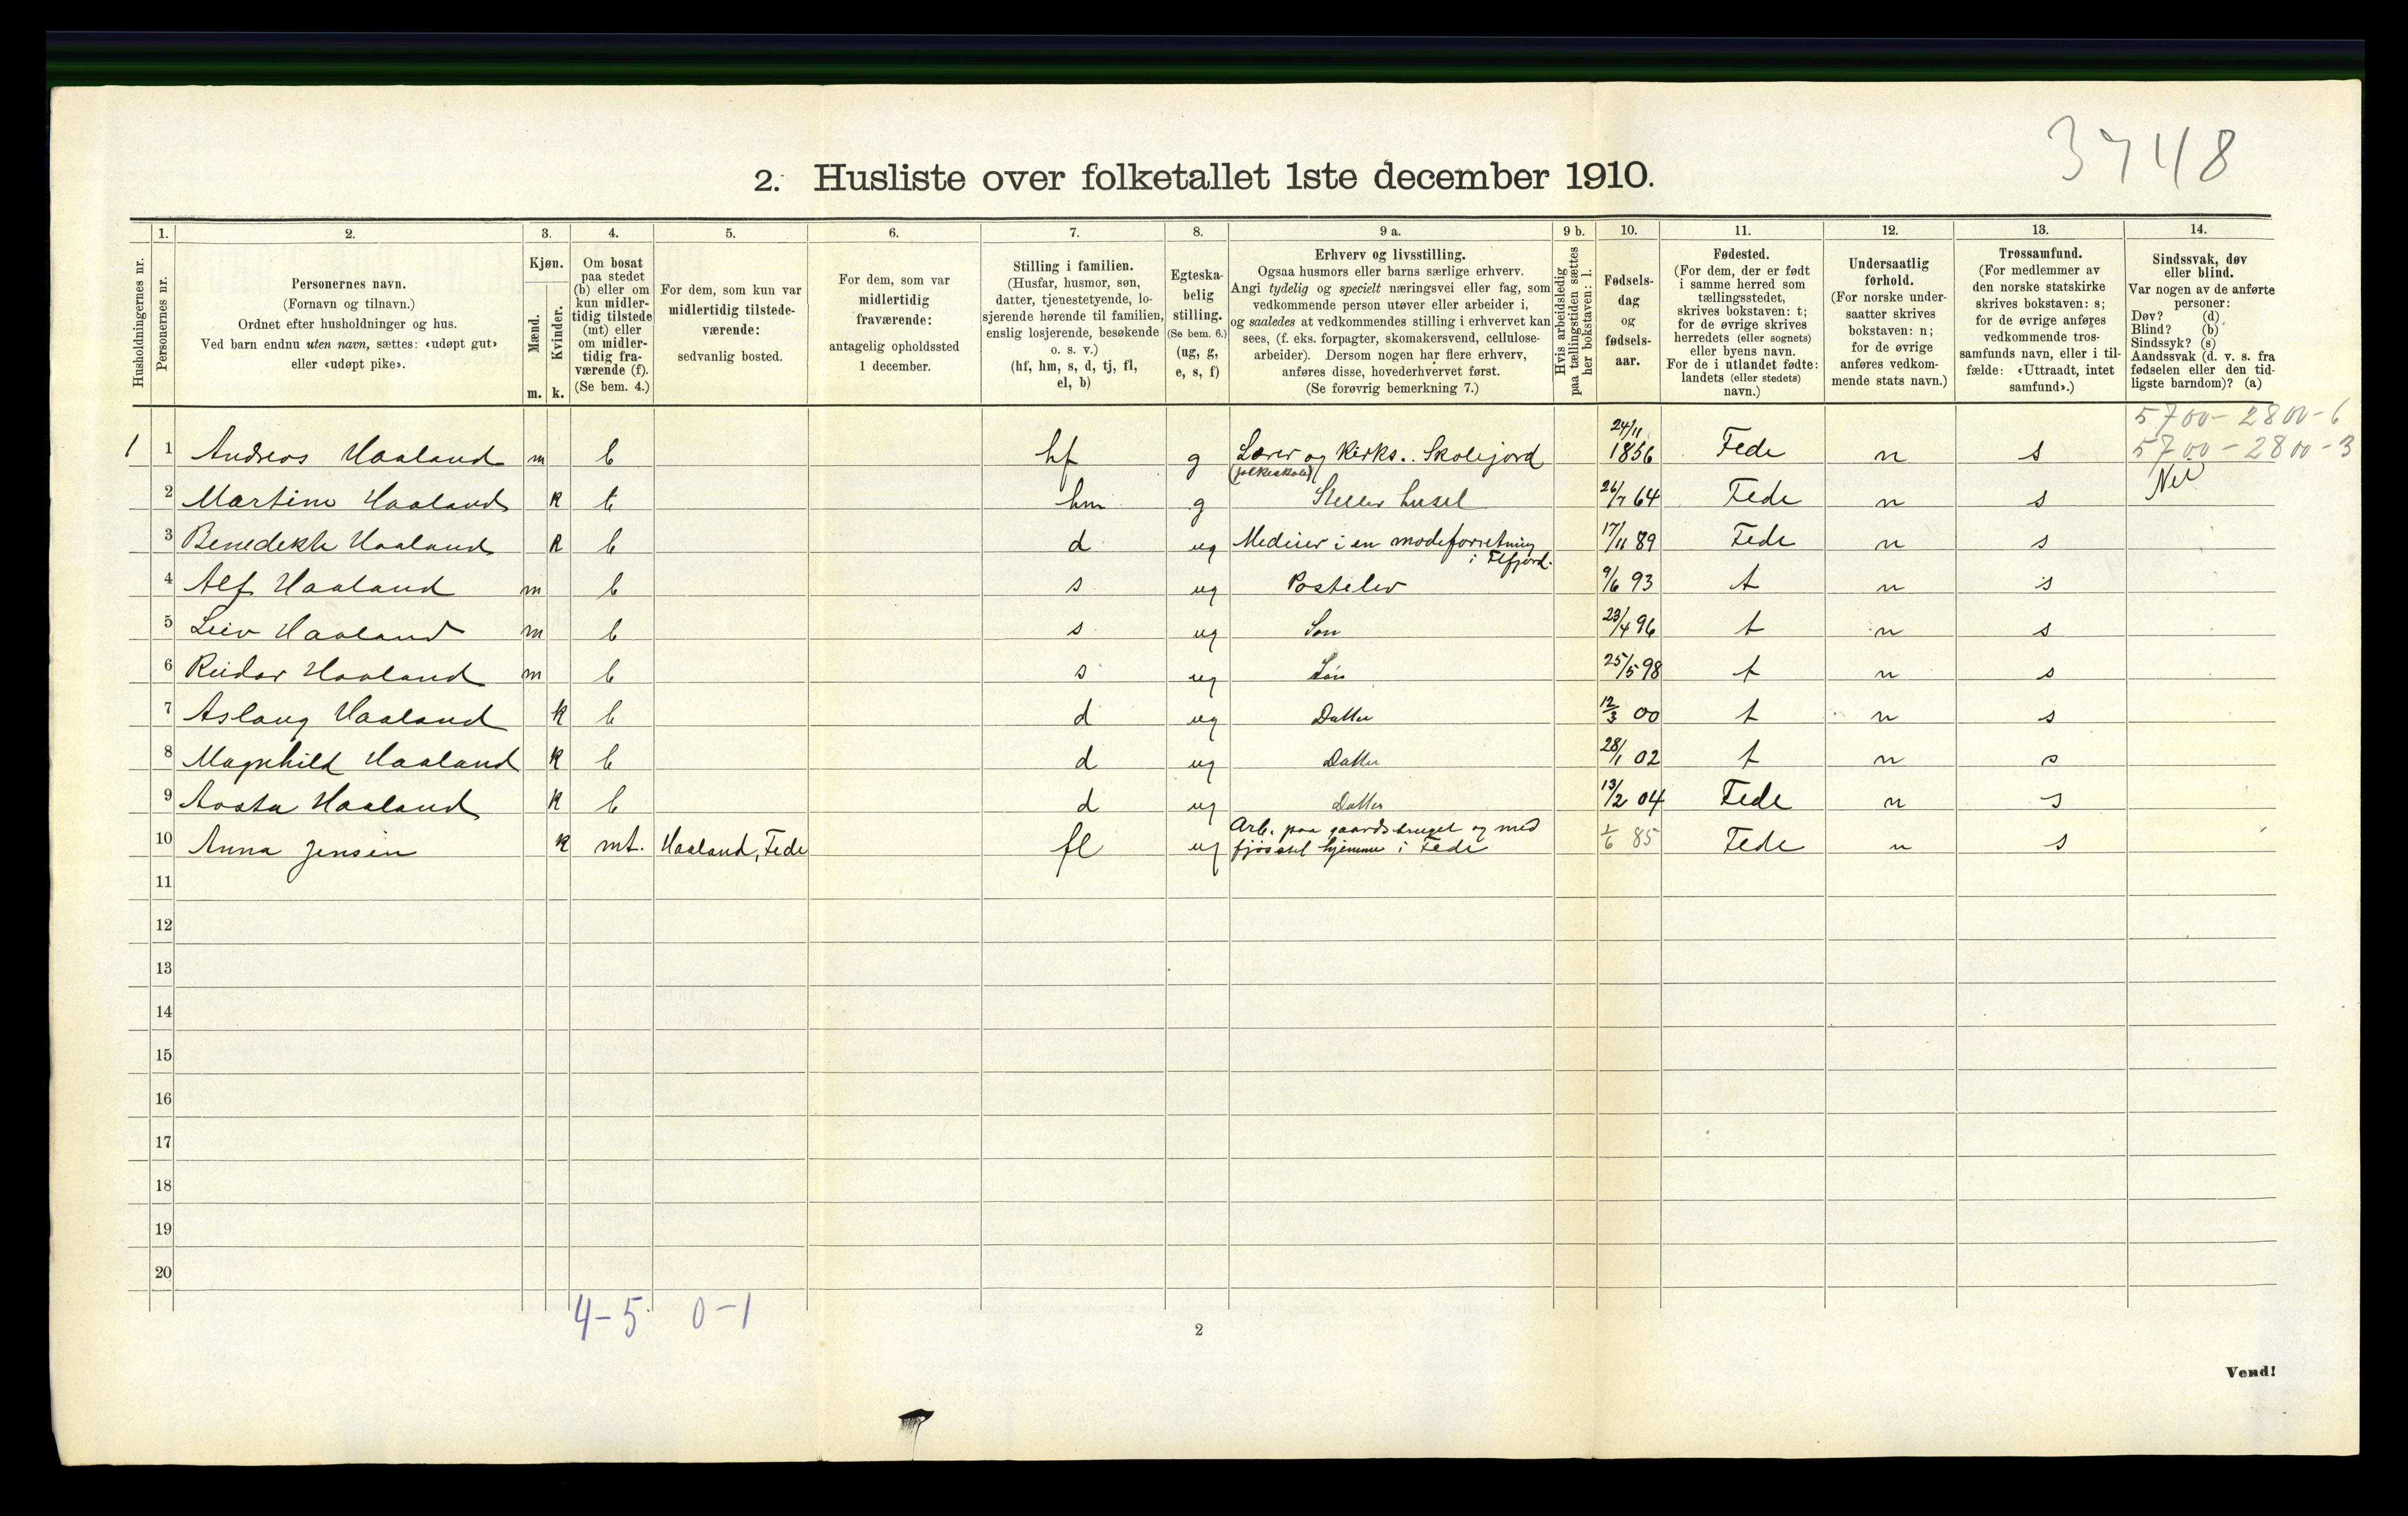 3748
2. Husliste over folketallet 1ste december 1910.
Husholdningernes nr.
1.
Personernes nr.
2.
Personernes navn.
(Fornavn og tilnavn.)
Ordnet efter husholdninger og hus.
Ved barn endnu uten navn, sættes: «udøpt gut»
eller «udøpt pike».
3.
Kjøn.
Mænd.
Kvinder.
m. k.
4.
Om bosat
paa stedet
(b) eller om
kun midler-
tidig tilstede
(mt) eller
om midler-
tidig fra-
værende (f).
(Se bem. 4.)
5.
For dem, som kun var
midlertidig tilstede-
værende:
sedvanlig bosted.
6.
For dem, som var
midlertidig
fraværende:
antagelig opholdssted
1 december.
7.
Stilling i familien.
(Husfar, husmor, søn,
datter, tjenestetyende, lo-
sjerende hørende til familien,
enslig losjerende, besøkende
o. s. v.)
(hf, hm, s, d, tj, fl,
el, b)
8.
Egteska-
belig
stilling.
(Se bem. 6.)
(ug, g,
e, s, f)
9 a.
Erhverv og livsstilling.
Ogsaa husmors eller barns særlige erhverv.
Angi tydelig og specielt næringsvei eller fag, som
vedkommende person utøver eller arbeider i,
og saaledes at vedkommendes stilling i erhvervet kan
sees, (f. eks. forpagter, skomakersvend, cellulose-
arbeider). Dersom nogen har flere erhverv,
anføres disse, hovederhvervet først.
(Se forøvrig bemerkning 7.)
9 b.
Hvis arbeidsledig
paa tællingstiden sættes
her bokstaven: l.
10.
Fødsels-
dag
og
fødsels-
aar.
11.
Fødested.
(For dem, der er født
i samme herred som
tællingsstedet,
skrives bokstaven: t;
for de øvrige skrives
herredets (eller sognets)
eller byens navn.
For de i utlandet fødte:
landets (eller stedets)
navn.)
12.
Undersaatlig
forhold.
(For norske under-
saatter skrives
bokstaven: n;
for de øvrige
anføres vedkom-
mende stats navn.)
13.
Trossamfund.
(For medlemmer av
den norske statskirke
skrives bokstaven: s;
for de øvrige anføres
vedkommende tros-
samfunds navn, eller i til-
fælde: «Uttraadt, intet
samfund».)
14.
Sindssvak, døv
eller blind.
Var nogen av de anførte
personer:
Døv? (d)
Blind? (b)
Sindssyk? (s)
Aandssvak (d. v. s. fra
fødselen eller den tid-
ligste barndom)? (a)
5700-2800-6
5700-2800-3
1 1 Andreas Haaland m b hf g Lærer og Kirks.. Skolejord (folkeskole) 24/11 1856 Fede n s Nei
2 Martine Haaland k b hm g Steller huset 26/7 64 Fede n s
3 Benedikte Haaland k b d ug Medeier i en modeforretning i Flfjord. 17/11 89 Fede n s
4 Alf Haaland m b s ug Postelev 9/6 93 t n s
5 Leiv Haaland m b s ug Søn 23/4 96 t n s
6 Reidar Haaland m b s ug Søn 25/5 98 t n s
7 Aslaug Haaland k b d ug Datter 12/3 00 t n s
8 Magnhild Haaland k b d ug Datter 28/1 02 t n s
9 Aasta Haaland k b d ug Datter 13/2 04 Fede n s
10 Anna Jensen k mt. Haaland, Fede fl ug Arb. paa gaardsbruget og med fjøsstel hjemme i Fede 1/6 85 Fede n s
11
12
13
14
15
16
17
18
19
20
4-5 0-1
2
Vend!